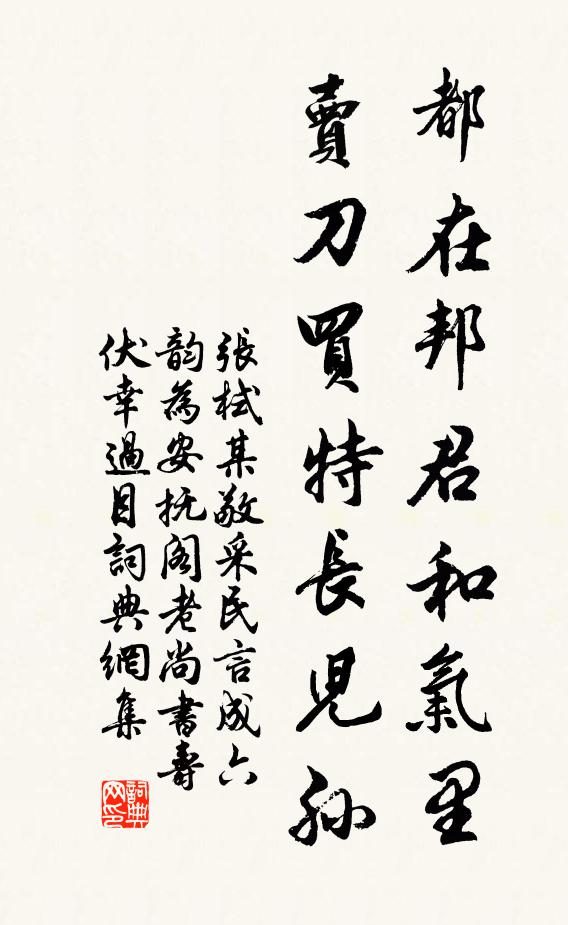 都在邦君和氣里
賣刀買特長兒孫
張栻某敬采民言成六
韵為安抚阁老尚書壽
伏幸過目詞典網集
詞典网印